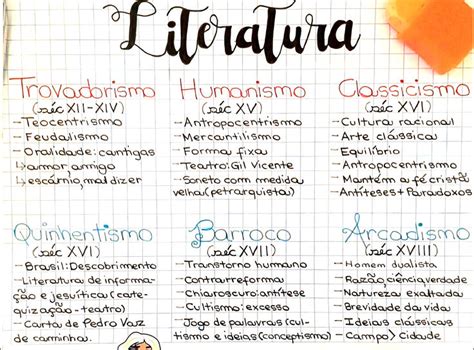 Literatura
Trovadorismo
(séc XII-XIV)
-Teocentrismo
-Feudalismo
-Oralidade: cantigas
↳amor, amigo
↳escárnio, mal dizer
Humanismo
(séc XV)
-Antropocentrismo
-Mercantilismo
-Forma fixa
-Teatro: Gil Vicente
-Soneto com medida
velha (petrarquista)
Classicismo
(séc XVI)
-Cultura racional
-Arte clássica
-Equilíbrio
-Antropocentrismo
-Mantém a fé cristã
-Antíteses + Paradoxos
Quinhentismo
(séc XVI)
-Brasil: Descobrimento
-Literatura de informa-
ção e jesuítica (cate-
quização-teatro)
-Carta de Pedro Vaz
de caminha.
Barroco
(séc XVII)
-Transtorno humano
-Contrarreforma
-Chiaroscuro: antítese
-Cultismo: excesso
-Jogo de palavras (cul-
tismo e ideias (conceptismo)
Arcadismo
(séc XVIII)
-Homem dualista
-Razão, ciência, verdade
-Natureza exaltada
-Brevidade da vida
-Ideias clássicas
-Campo > Cidade